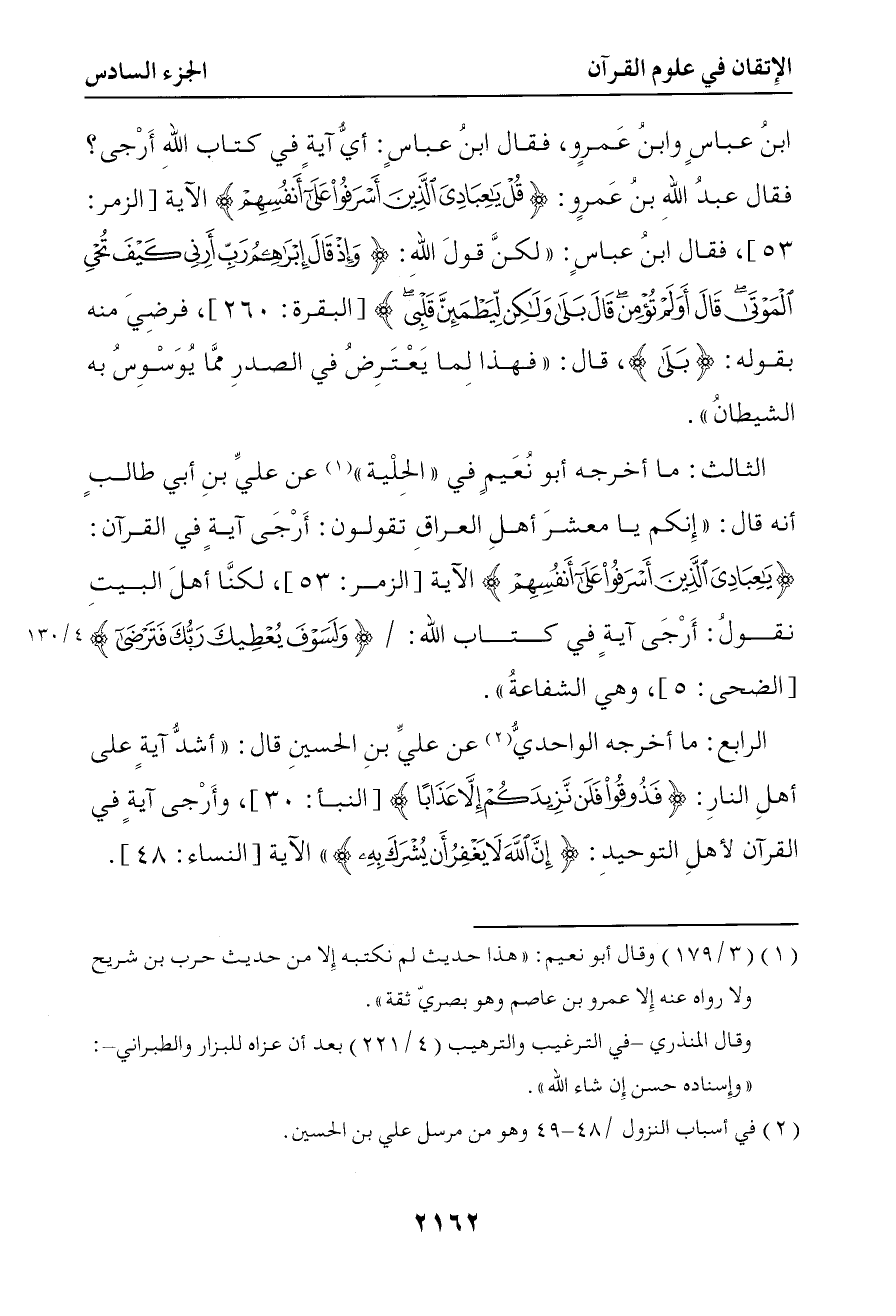 الإتقان في علوم القرآن الجزء السادس
ابنُ عباسٍ وابنُ عَمرٍو، فقال ابنُ عباسٍ: أيُّ آيةٍ في كتاب اللهِ أَرْجى؟
فقال عبدُ اللهِ بنُ عَمرٍو: ﴿ قُلْ يَٰعِبَادِىَ ٱلَّذِينَ أَسْرَفُوا۟ عَلَىٰٓ أَنفُسِهِمْ ﴾ الآية [الزمر:
٥٣]، فقال ابنُ عباسٍ: «لكنَّ قولَ اللهِ: ﴿ وَإِذْ قَالَ إِبْرَٰهِـۧمُ رَبِّ أَرِنِى كَيْفَ تُحْىِ
ٱلْمَوْتَىٰ ۖ قَالَ أَوَلَمْ تُؤْمِن ۖ قَالَ بَلَىٰ وَلَٰكِن لِّيَطْمَئِنَّ قَلْبِى ۖ ﴾ [البقرة: ٢٦٠]، فرضيَ منه
بقوله: ﴿ بَلَىٰ ﴾، قال: «فهذا لما يَعْتَرِضُ في الصدرِ ممَّا يُوَسْوِسُ به
الشيطانُ».
الثالث: ما أخرجه أبو نُعَيمٍ في «الحِلْية»(١) عن عليِّ بنِ أبي طالبٍ
أنه قال: «إنكم يا معشرَ أهلِ العراقِ تقولون: أَرْجَى آيةٍ في القرآن:
﴿ يَٰعِبَادِىَ ٱلَّذِينَ أَسْرَفُوا۟ عَلَىٰٓ أَنفُسِهِمْ ﴾ الآية [الزمر: ٥٣]، لكنَّا أهلَ البيتِ
نقولُ: أَرْجَى آيةٍ في كتاب الله: / ﴿ وَلَسَوْفَ يُعْطِيكَ رَبُّكَ فَتَرْضَىٰٓ ﴾ ١٣٠/٤
[الضحى: ٥]، وهي الشفاعةُ».
الرابع: ما أخرجه الواحديُّ(٢) عن عليِّ بنِ الحسينِ قال: «أشدُّ آيةٍ على
أهلِ النارِ: ﴿ فَذُوقُوا۟ فَلَن نَّزِيدَكُمْ إِلَّا عَذَابًا ﴾ [النبأ: ٣٠]، وأَرْجى آيةٍ في
القرآن لأهلِ التوحيدِ: ﴿ إِنَّ ٱللَّهَ لَا يَغْفِرُ أَن يُشْرَكَ بِهِۦ ﴾» الآية [النساء: ٤٨].
(١) (١٧٩/٣) وقال أبو نعيم: «هذا حديث لم نكتبه إلا من حديث حرب بن شريح
ولا رواه عنه إلا عمرو بن عاصم وهو بصريّ ثقة».
وقال المنذري -في الترغيب والترهيب (٢٢١/٤) بعد أن عزاه للبزار والطبراني-:
«وإسناده حسن إن شاء الله».
(٢) في أسباب النزول /٤٨-٤٩ وهو من مرسل علي بن الحسين.
٢١٦٢